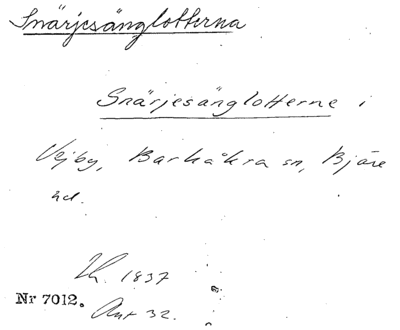 Snärjesänglotterna
Snärjesänglotterne i
Vejby, Barkåkra sn, Bjäre
hd.
Lh. 1837
Nr 7012.
Akt 32.